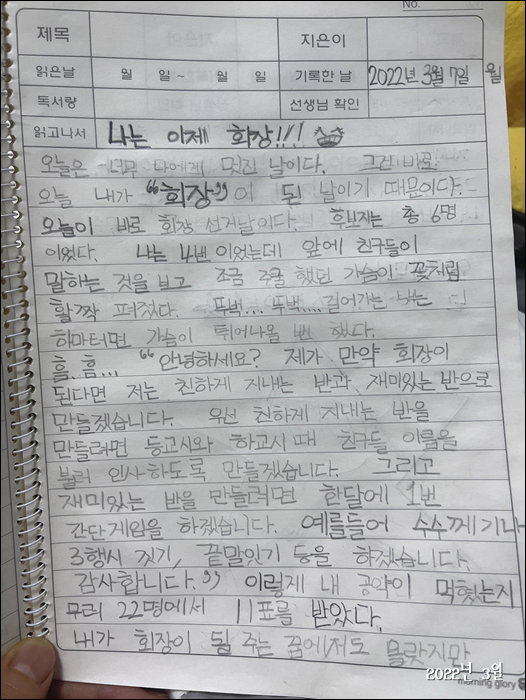 No.
제목 지은이
읽은날 월 일 ~ 월 일 기록한 날 2022년 3월 7일 월
독서량 선생님 확인
읽고나서 나는 이제 회장!!!
오늘은 너무 나에게 멋진 날이다. 그건 바로
오늘 내가 “회장”이 된 날이기 때문이다.
오늘이 바로 회장 선거날이다. 후보자는 총 6명
이었다. 나는 4번 이었는데 앞에 친구들이
말하는 것을 보고 조금 주춤 했던 가슴이 꽃처럼
활짝 펴졌다. 뚜벅... 뚜벅... 걸어가는 나는
하마터면 가슴이 튀어나올 뻔 했다.
흠.흠... “안녕하세요? 제가 만약 회장이
된다면 저는 친하게 지내는 반과 재미있는 반으로
만들겠습니다. 우선 친하게 지내는 반을
만들려면 등교시와 하교시 때 친구들 이름을
불러 인사하도록 만들겠습니다. 그리고
재미있는 반을 만들려면 한달에 1번
간단게임을 하겠습니다. 예를들어 수수께기나
3행시 짓기, 끝말잇기 등을 하겠습니다.
감사합니다.” 이렇게 내 공약이 먹혔는지
무려 22명에서 11표를 받았다.
내가 회장이 될 주는 꿈에저도 몰랏지만
2022년 3월
morning glory